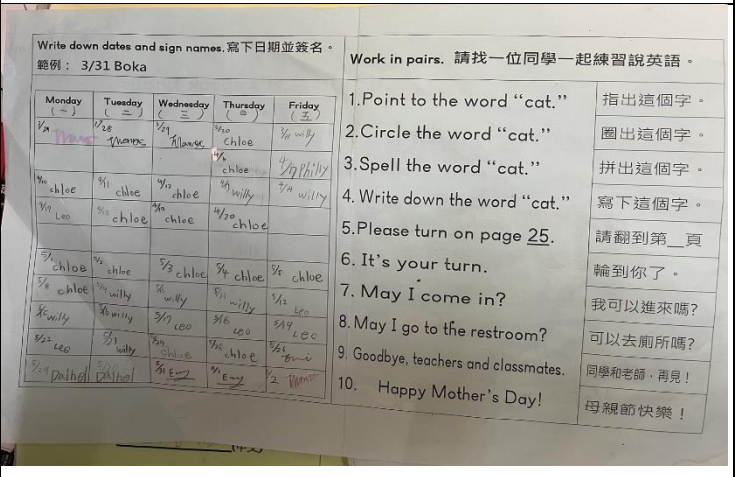 Write down dates and sign names. 寫下日期並簽名。
範例： 3/31 Boka
Monday Tuesday Wednesday Thursday Friday
(一) (二) (三) (四) (五)
3/28 3/29 3/30 Chloe willy
4/6 chloe Philly
4/10 chloe 4/11 chloe 4/12 chloe willy willy
4/17 Leo chloe chloe 4/20 chloe
5/1 chloe 5/2 chloe 5/3 chloe 5/4 chloe 5/5 chloe
5/8 chloe 5/9 willy willy 5/11 willy 5/12 Leo
willy willy 5/17 Leo 5/18 Leo 5/19 Leo
5/22 Leo willy Chloe chloe 5/26
Emy Emy
Work in pairs. 請找一位同學一起練習說英語。
1.Point to the word “cat.” 指出這個字。
2.Circle the word “cat.” 圈出這個字。
3.Spell the word “cat.” 拼出這個字。
4. Write down the word “cat.” 寫下這個字。
5.Please turn on page 25. 請翻到第__頁
6. It’s your turn. 輪到你了。
7. May I come in? 我可以進來嗎?
8.May I go to the restroom? 可以去廁所嗎?
9. Goodbye, teachers and classmates. 同學和老師，再見！
10. Happy Mother’s Day! 母親節快樂！